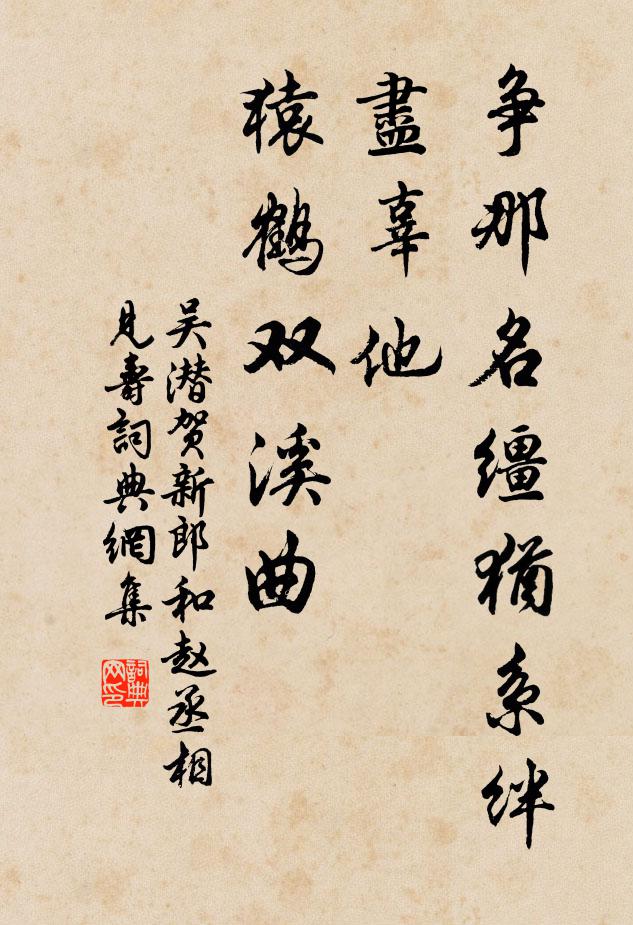 争那名缰犹系绊
盡辜他
猿鹤双溪曲
吴潜贺新郎和赵丞相
见壽詞典網集
詞典网印